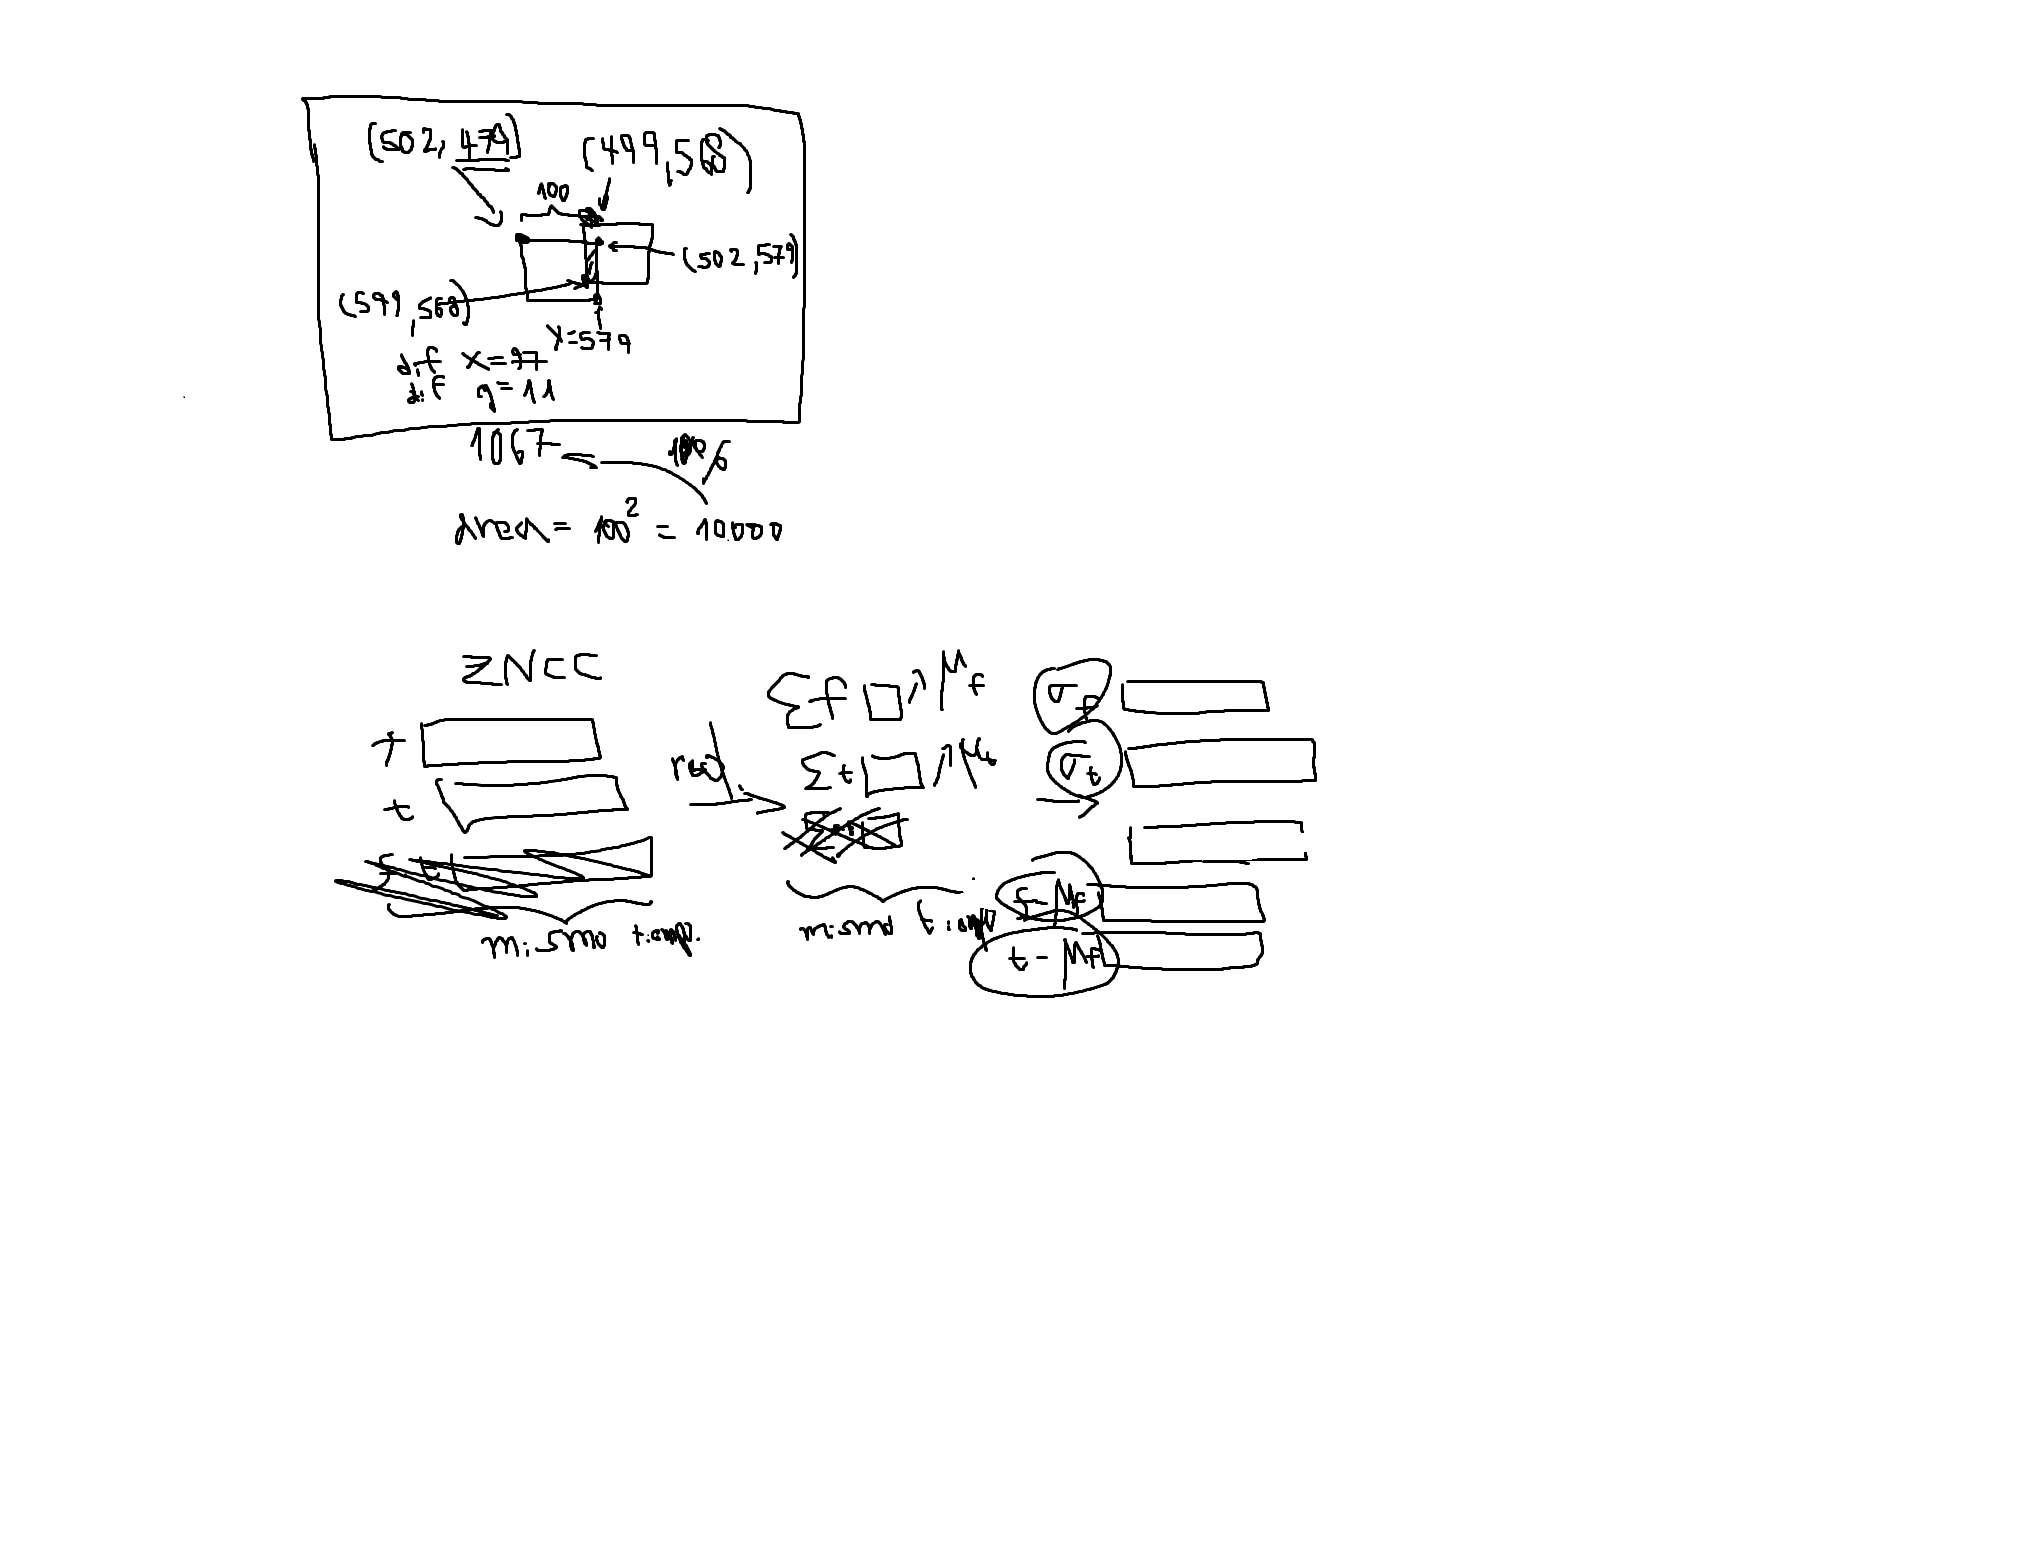 (502, 479) (499, 568)
100
(502, 579)
(599, 568)
y=579
dif x=97
dif y=11
1067
área = 100² = 10.000
ZNCC
f
t
mismo tiemp.
red.
Σf μf
Σt μt
mismo tiempo
σf
σt
f-μf
t-μf